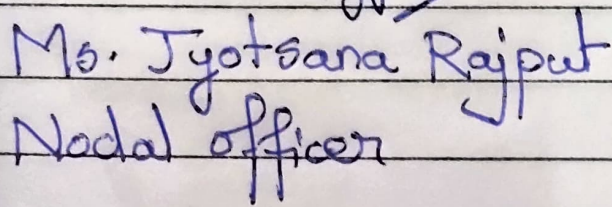 Ms. Jyotsana Rajput
Nodal officer